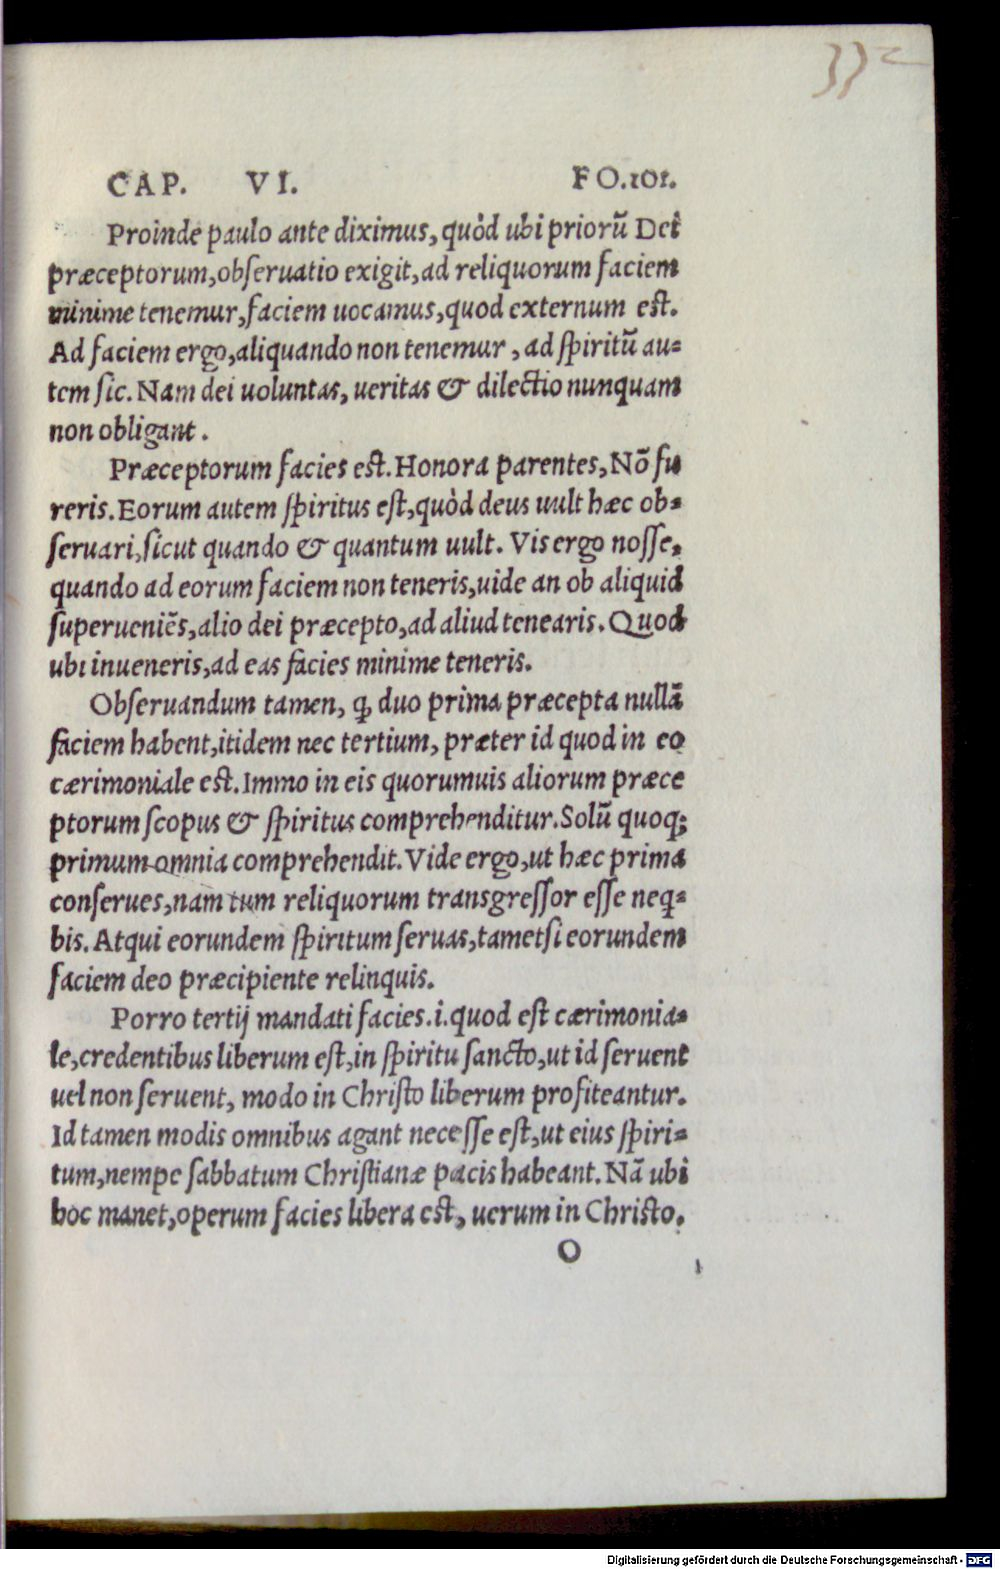 332
CAP. VI. FO.101.
Proinde paulo ante diximus, quòd ubi priorũ Dei
præceptorum, obseruatio exigit, ad reliquorum faciem
minime tenemur, faciem uocamus, quod externum est.
Ad faciem ergo, aliquando non tenemur, ad spiritũ au=
tem sic. Nam dei uoluntas, ueritas & dilectio nunquam
non obligant.
Præceptorum facies est. Honora parentes, Nõ fu
reris. Eorum autem spiritus est, quòd deus uult hæc ob=
seruari, sicut quando & quantum uult. Vis ergo nosse,
quando ad eorum faciem non teneris, uide an ob aliquid
superueniẽs, alio dei præcepto, ad aliud tenearis. Quod
ubi inueneris, ad eas facies minime teneris.
Obseruandum tamen, ꝙ duo prima præcepta nullã
faciem habent, itidem nec tertium, præter id quod in eo
cærimoniale est. Immo in eis quorumuis aliorum præce
ptorum scopus & spiritus comprehenditur. Solũ quoq;
primum omnia comprehendit. Vide ergo, ut hæc prima
conserues, nam tum reliquorum transgressor esse neq̃=
bis. Atqui eorundem spiritum seruas, tametsi eorundem
faciem deo præcipiente relinquis.
Porro tertij mandati facies .i. quod est cærimonia=
le, credentibus liberum est, in spiritu sancto, ut id seruent
uel non seruent, modo in Christo liberum profiteantur.
Id tamen modis omnibus agant necesse est, ut eius spiri=
tum, nempe sabbatum Christianæ pacis habeant. Nã ubi
hoc manet, operum facies libera est, uerum in Christo.
O
Digitalisierung gefördert durch die Deutsche Forschungsgemeinschaft - DFG